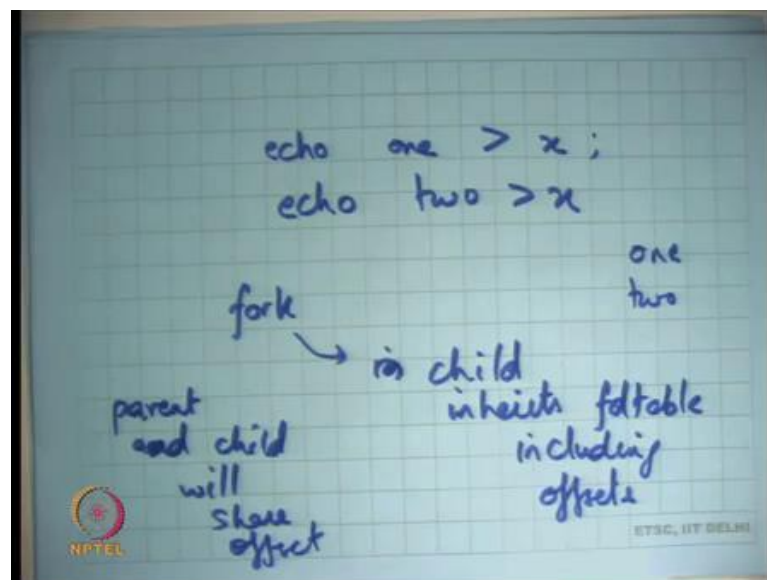 echo one > x ;
echo two > x
one
two
fork
in child
inherits fdtable
including
offsets
parent
and child
will
share
offset
NPTEL
ETSC, IIT DELHI